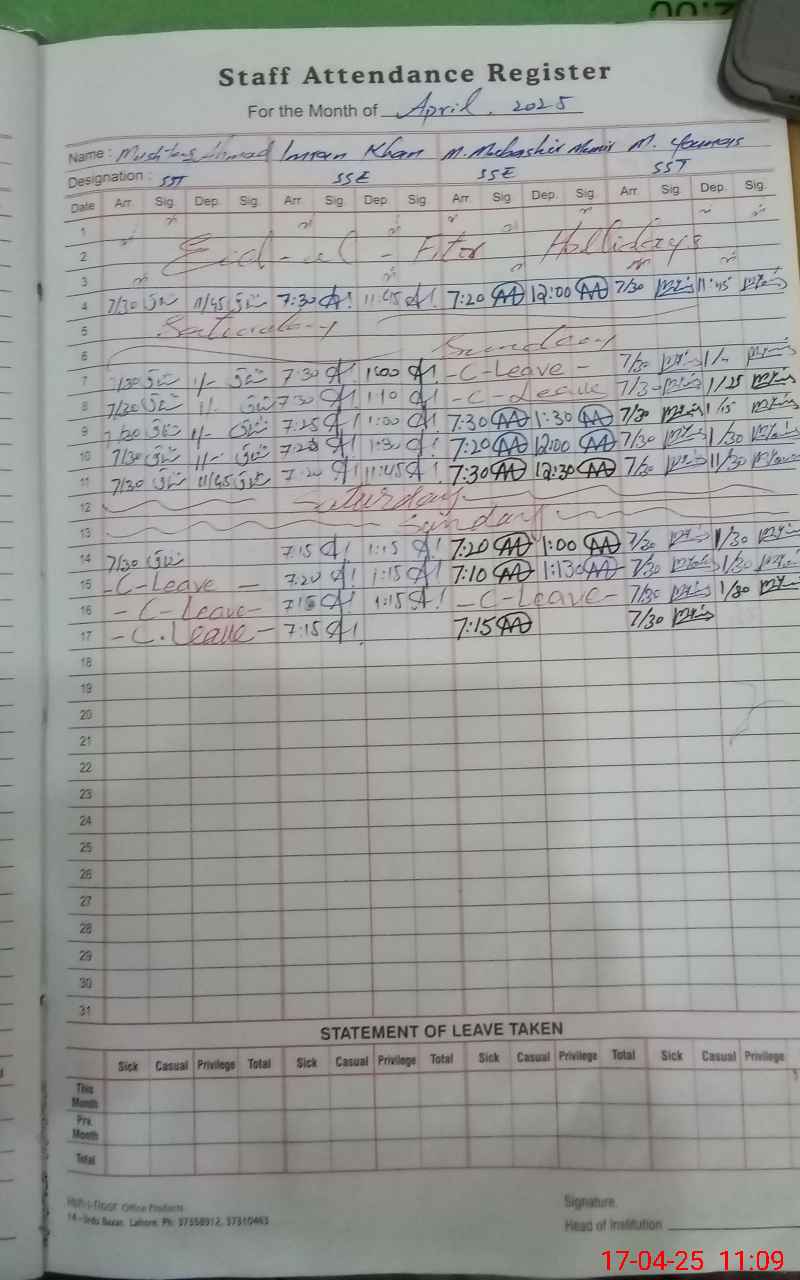 Staff Attendance Register
For the Month of April, 2025
Name: Mushtaq Ahmad Imran Khan M. Mubashir Munir M. Younas
Designation: SST SSE SSE SST
Date Arr. Sig. Dep. Sig. Arr. Sig. Dep. Sig. Arr. Sig. Dep. Sig. Arr. Sig. Dep. Sig.
1
2 Eid-ul-Fitr Hollidays
3
4 7/30 11/45 7:30 11:45 7:20 12:00 7/30 11:45
5 Saturday
6 Sunday
7 7/30 1/- 7:30 1:00 -C-Leave- 7/30 1/-
8 7/30 1/- 7:30 1:10 -C-Leave 7/3 1/25
9 7/30 1/- 7:25 1:00 7:30 1:30 7/30 1/15
10 7/30 1/- 7:20 1:30 7:20 12:00 7/30 1/30
11 7/30 11/45 7:20 11:45 7:30 12:30 7/30 11/30
12 Saturday
13 Sunday
14 7/30 7:15 1:15 7:20 1:00 7/30 1/30
15 -C-Leave- 7:20 1:15 7:10 1:130 7/30 1/30
16 -C-Leave- 7:15 1:15 -C-Leave- 7/30 1/30
17 -C.Leave- 7:15 7:15 7/30
18
19
20
21
22
23
24
25
26
27
28
29
30
31
STATEMENT OF LEAVE TAKEN
Sick Casual Privilege Total Sick Casual Privilege Total Sick Casual Privilege Total Sick Casual Privilege
This Month
Prv. Month
Total
Office Products
14-Urdu Bazar, Lahore. Ph: 37358912, 37310463
Signature
Head of Institution
17-04-25 11:09